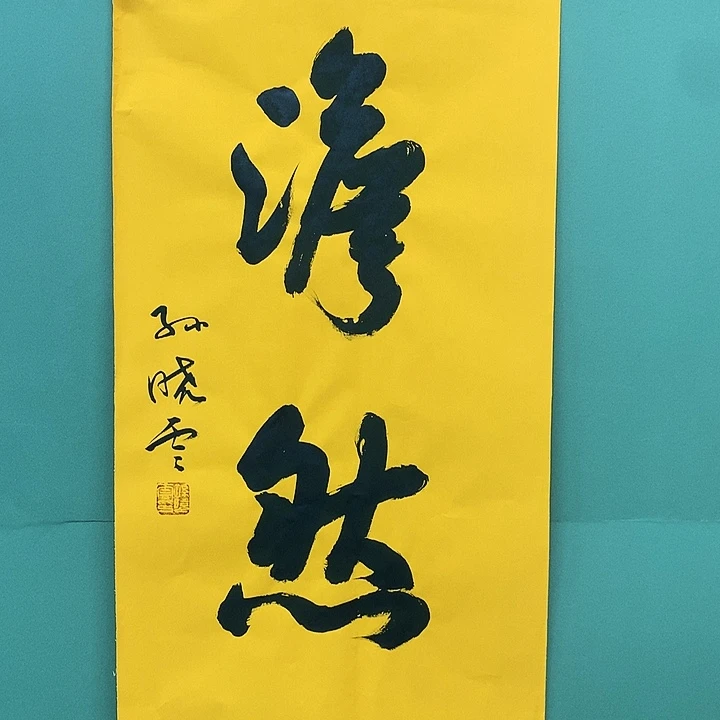 澹然
孙晓云